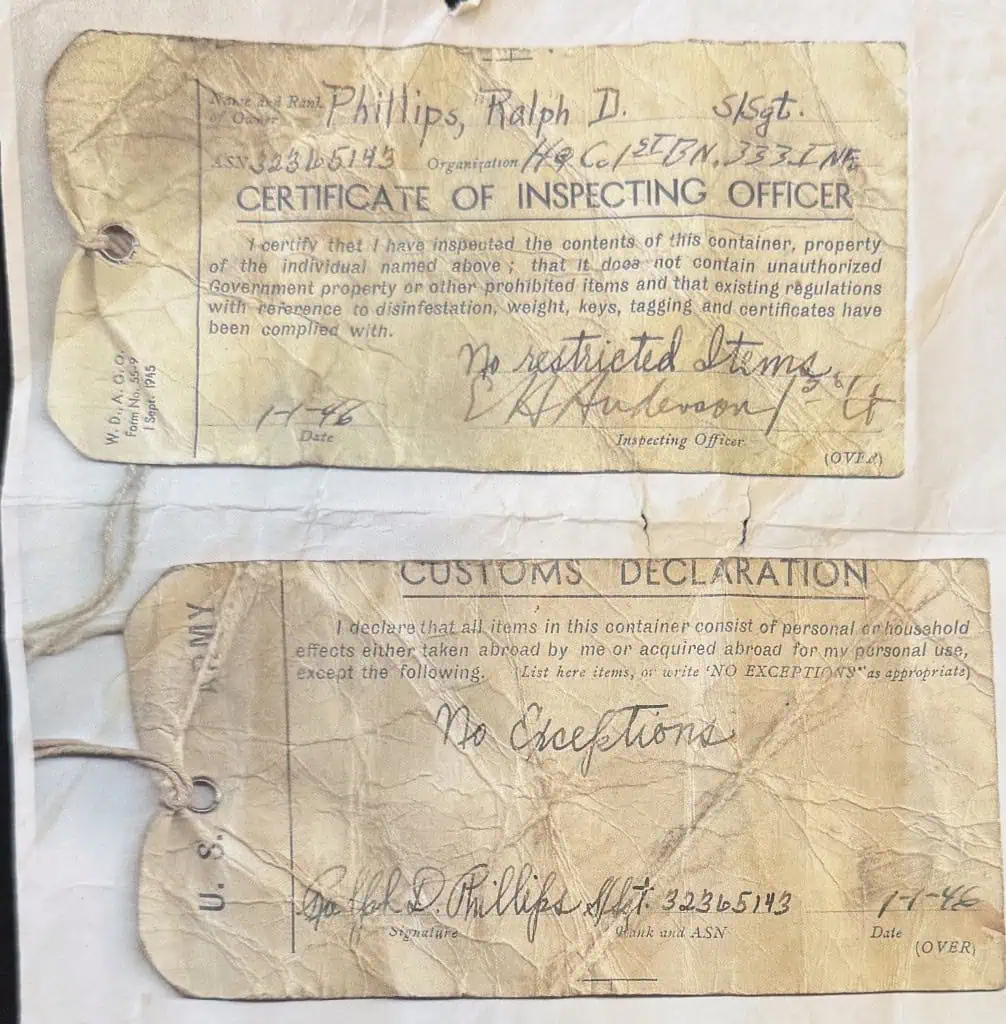 Name and Rank Phillips, Ralph D. S/Sgt.
of Owner
ASN 32365143 Organization Hq. Co. 1ST BN. 333 INF.
CERTIFICATE OF INSPECTING OFFICER
I certify that I have inspected the contents of this container, property
of the individual named above; that it does not contain unauthorized
Government property or other prohibited items and that existing regulations
with reference to disinfestation, weight, keys, tagging and certificates have
been complied with.
No restricted Items
E H Anderson 1st Lt
1-1-46
Date
Inspecting Officer
(OVER)
W. D., A. G. O.
Form No. 55-9
1 Sept. 1945
CUSTOMS DECLARATION
I declare that all items in this container consist of personal or household
effects either taken abroad by me or acquired abroad for my personal use,
except the following. (List here items, or write 'NO EXCEPTIONS" as appropriate)
No Exceptions
Ralph D. Phillips S/Sgt. 32365143 1-1-46
Signature Rank and ASN Date
(OVER)
U. S. ARMY